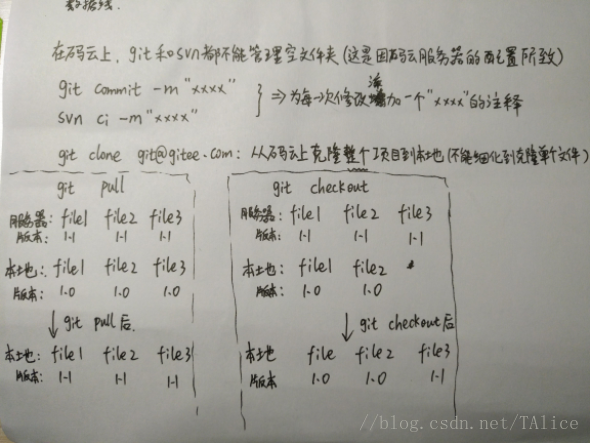 数据线.
在码云上, git 和 svn 都不能管理空文件夹 (这是因码云服务器的配置所致)
git commit -m "xxxx"
svn ci -m "xxxx"
} => 为每一次修改添加一个 "xxxx" 的注释
git clone git@gitee.com: 从码云上克隆整个项目到本地 (不能细化到克隆单个文件)
git pull
服务器: file1 file2 file3
版本: 1.1 1.1 1.1
本地: file1 file2 file3
版本: 1.0 1.0 1.0
↓ git pull 后.
本地: file1 file2 file3
版本: 1.1 1.1 1.1
git checkout
服务器: file1 file2 file3
版本: 1.1 1.1 1.1
本地: file1 file2 *
版本: 1.0 1.0
↓ git checkout 后
本地 file file2 file3
版本: 1.0 1.0 1.1
//blog.csdn.net/TAlice